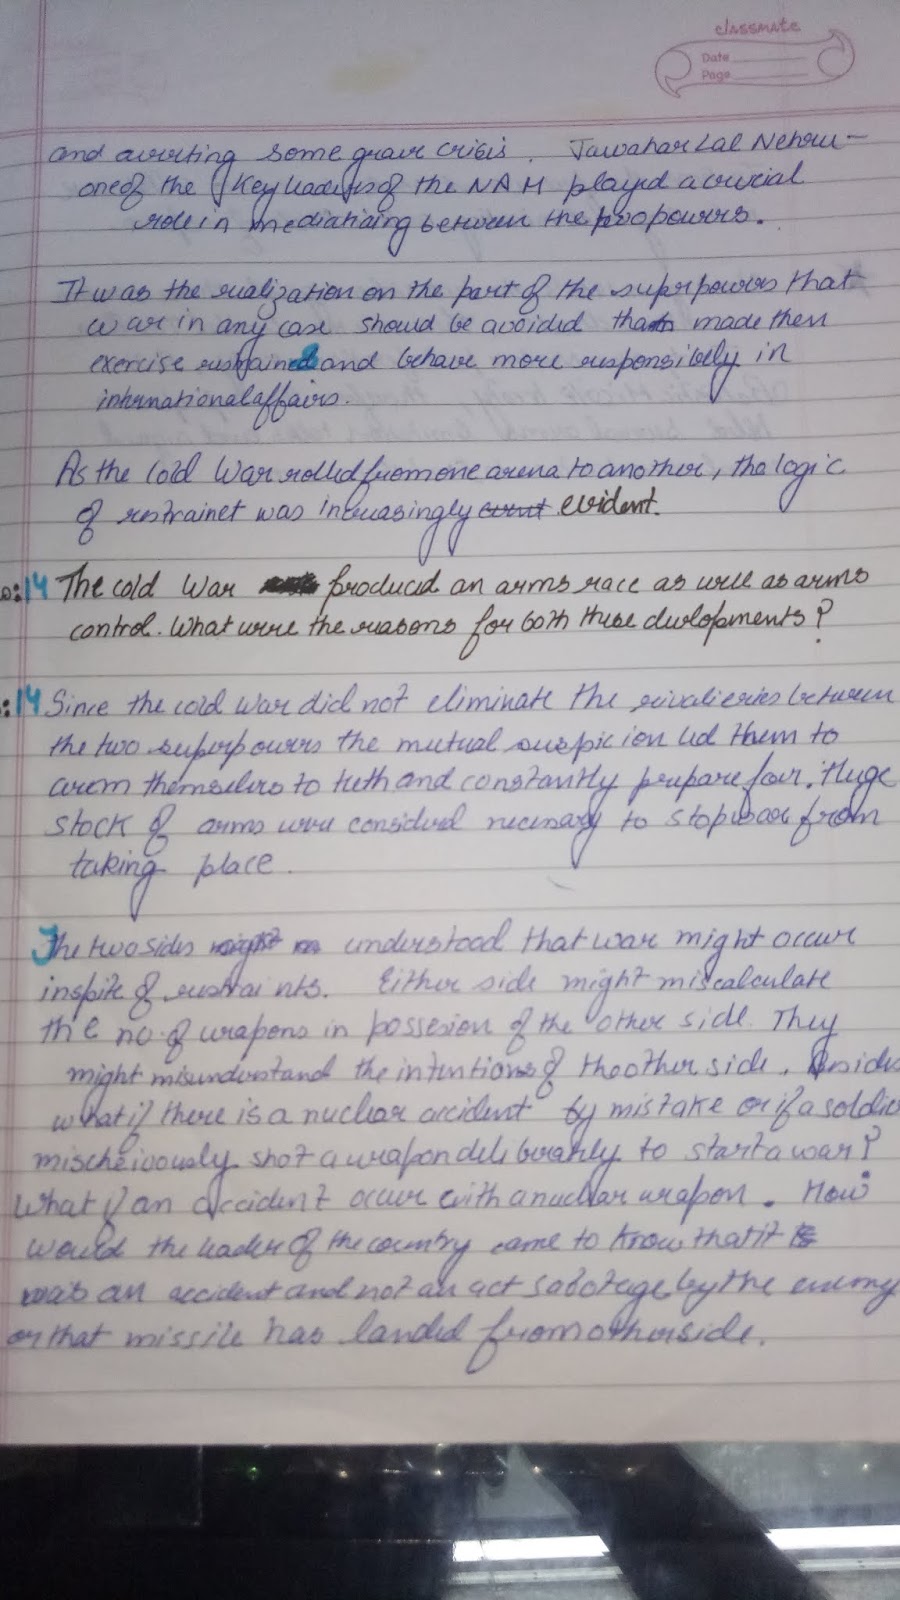 classmate
Date
Page
and averting some grave crisis. Jawahar Lal Nehru -
one of the key leaders of the NAM played a crucial
role in mediatiaing between the two powers.
It was the realization on the part of the superpowers that
war in any case should be avoided that made then
exercise restrained and behave more responsibely in
international affairs.
As the Cold War rolled from one arena to another, the logic
of restrainet was increasingly evident.
:14 The cold War produced an arms race as well as arms
control. What were the reasons for both these developments?
:14 Since the cold War did not eliminate the rivalieries between
the two superpowers the mutual suspicion led them to
arem themselves to teeth and constantly prepare for. Huge
stock of arms were considerd necessary to stop war from
taking place.
The two sides understood that war might occur
inspite of restraints. Either side might miscalculate
the no. of weapons in possesion of the other side. They
might misunderstand the intentions of the other side. Besides
what if there is a nuclear accident by mistake or if a soldier
mischeivously shot a weapon deliberately to start a war?
What if an accident occur with a nuclear weapon. How
would the leader of the country came to know that it
was an accident and not an act sabotage by the enemy
or that missile has landed from other side.